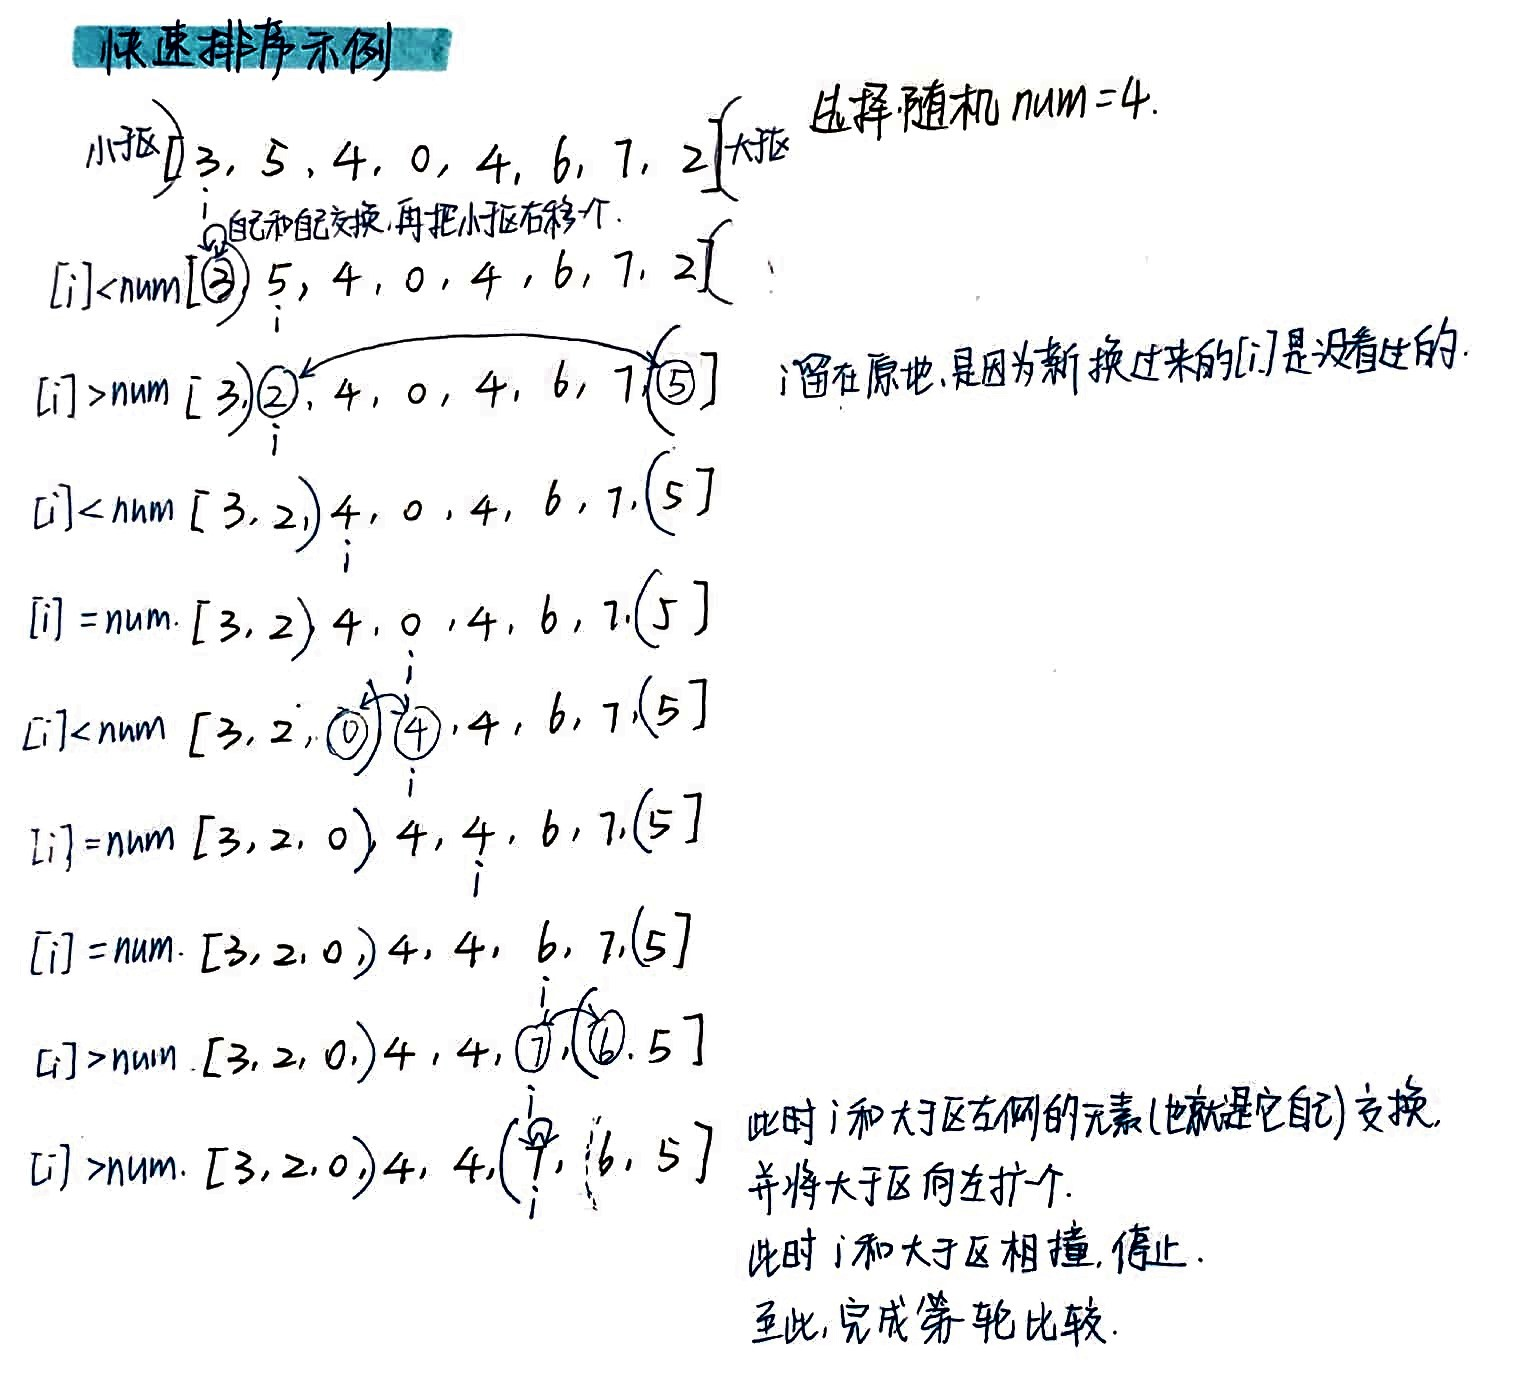 快速排序示例
选择随机num=4.
小于区)[3, 5, 4, 0, 4, 6, 7, 2](大于区
i
自己和自己交换,再把小于区右移一个.
[i]<num[3) 5, 4, 0, 4, 6, 7, 2](
i
[i]>num [3,)2, 4, 0, 4, 6, 7,(5]
i留在原地,是因为新换过来的[i]是没看过的.
i
[i]<num [3, 2,)4, 0, 4, 6, 7,(5]
i
[i]=num. [3, 2) 4, 0, 4, 6, 7,(5]
i
[i]<num [3, 2, 0) 4, 4, 6, 7,(5]
i
[i]=num [3, 2, 0), 4, 4, 6, 7,(5]
i
[i]=num. [3, 2, 0,) 4, 4, 6, 7,(5]
i
[i]>num. [3, 2, 0,) 4, 4, 7,(6, 5]
i
[i]>num. [3, 2, 0,) 4, 4,(7, 6, 5]
i
此时i和大于区左侧的元素(也就是它自己)交换,
并将大于区向左扩一个.
此时i和大于区相撞,停止.
至此,完成第一轮比较.